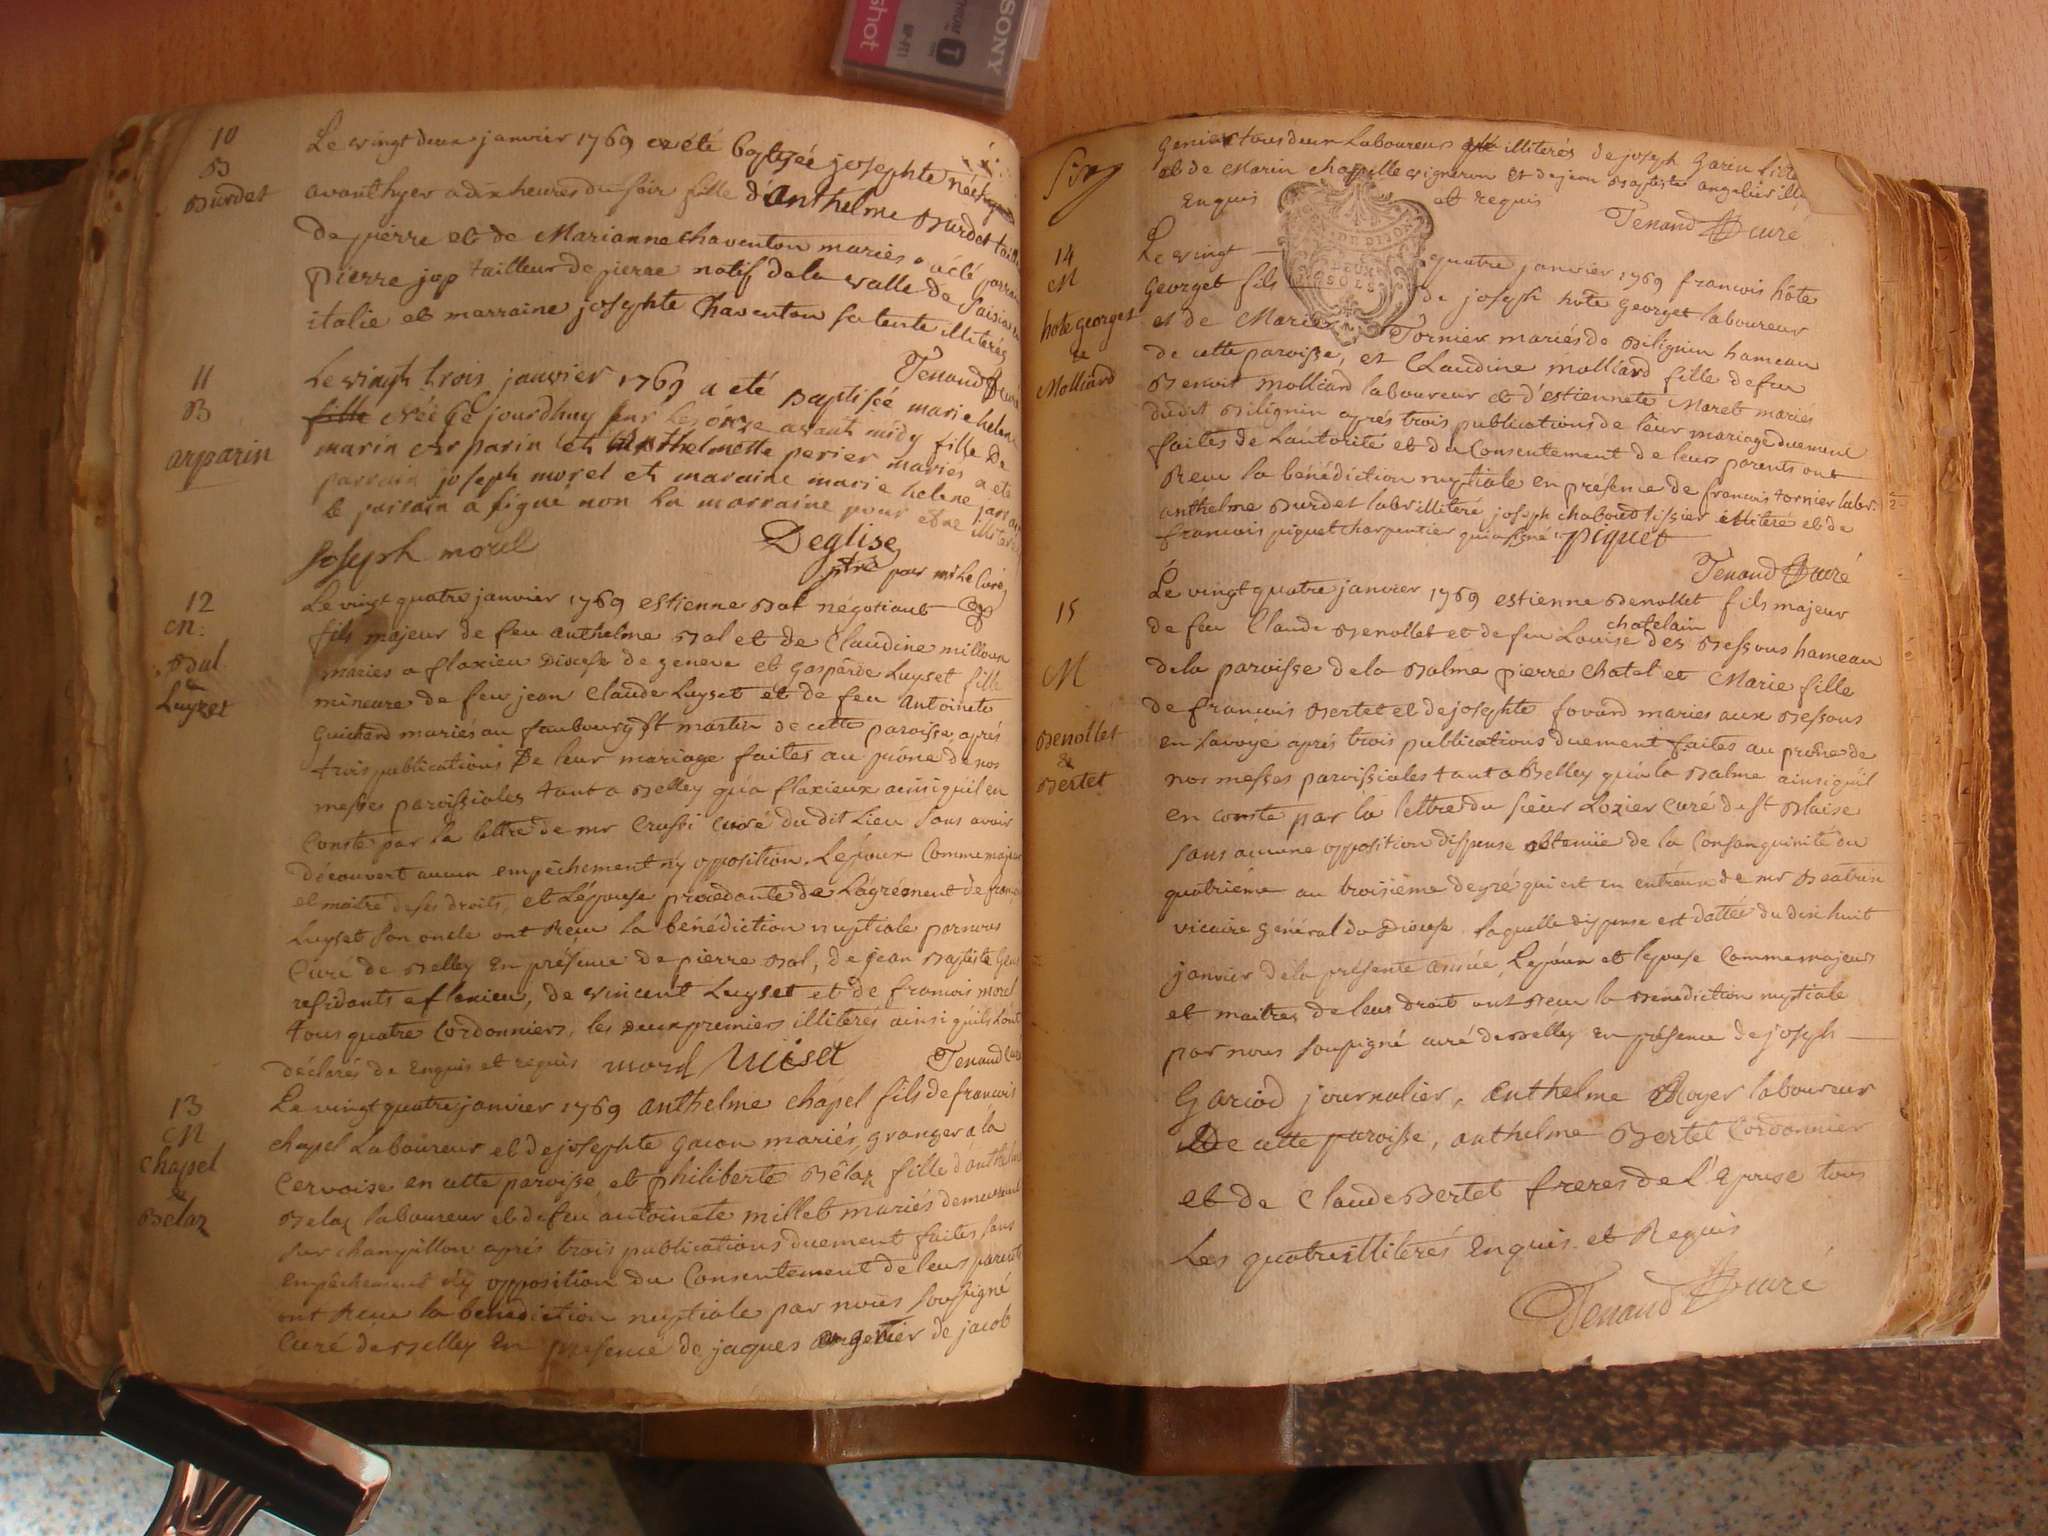 SONY
shot
10
B
Burdet
Le vingt deux janvier 1769 a été Baptisée josephte née
avanthyer a dix heures du soir fille d'anthelme Burdet
de pierre et de Marianne chaventon mariés a été
pierre jap tailleur de pierre natif de la valle de
italie et marraine josephte Chaventon sa tente illiterés
Tenand Curé
11
B
arparin
Le vingt trois janvier 1769 a eté Baptisée marie helene
fille née ce jourdhuy sur les onze avant midy fille De
marin arparin et Anthelmette perier mariés a ete
parrain joseph morel et maraine marie helene
le parrain a signé non La marraine pour etre illiterée
joseph morel
Deglise
ptre pour mr le curé
12
M
Bal
&
Luyset
Le vingt quatre janvier 1769 estienne Bal négotiant
fils majeur de feu anthelme Bal et de Claudine milloux
mariés a flaxieu Diocese de geneve et gasparde Luyset fille
mineure de feu jean Claude Luyset et de feu Antoinete
Guicherd mariés au faubourg st martin de cette paroisse, aprés
trois publications De leur mariage faites au prône de nos
messes paroissiales tant a Belley qu'a flaxieux ainsi qu'il en
Conste par la lettre de mr Crussi Curé du dit Lieu sans avoir
découvert aucun empêchement ny opposition. Lepoux Comme majeur
et maitre de ses droits, et L'épouse procedante de L'agréement de
Luyset son oncle ont Reçu la bénédiction nuptiale par nous
Curé de Belley En présence de pierre Bal, de jean Baptiste
residants a flaxieu, de vincent Luyset et de francois morel
tous quatre Cordonniers, les deux premiers illiterés ainsi qu'ils l'ont
déclarés de Enquis et requis morel
Tenand Curé
13
M
Chapel
&
Belaz
Le vingt quatre janvier 1769 anthelme chapel fils de francois
chapel Laboureur et de josephte gacon mariés granger a la
Cervoise en cette paroisse et philiberte Bélaz fille d'anthelme
Belaz laboureur et de feu antoinete millet mariés demeurant
sur champillon aprés trois publications duement faites sans
empêchement n'y opposition du Consentement de leurs parents
ont Reçu la benediction nuptiale par nous soussigné
Curé de Belley En presence de jaques de jacob
Genier tous deux Laboureurs illiterés de joseph Garin
et de Marin chapelle vigneron et de jean Baptiste
Enquis et requis
Tenand Curé
DE DIJON
DEUX
SOLS
14
M
hote georget
&
Molliard
Le vingt quatre janvier 1769 francois hôte
Georget fils de joseph hote Georget laboureur
et de Marie Tornier mariés de Bilignin hameau
de cette paroisse, et Claudine molliard fille de feu
Benoit Molliard laboureur et d'estiennete Maret mariés
dudit Bilignin aprés trois publications de leur mariage duement
faites de L'autorité et du Consentement de leurs parents ont
Reçu la bénédiction nuptiale en présence de francois tornier labr.
anthelme Burdet labr illiteré joseph chaboud tissier illiteré et de
francois piquet charpentier qui a signé piquet
Tenand Curé
15
M
Benollet
&
Bertet
Le vingt quatre janvier 1769 estienne Benollet fils majeur
de feu Claude Benollet et de feu Louise chatelain des Bessous hameau
de la paroisse de la Balme pierre Chatel et Marie fille
de francois Bertet et de josephte fovard mariés aux Bessous
en savoye aprés trois publications duement faites au prône de
nos messes paroissiales tant a Belley qu'a la Balme ainsi qu'il
en conste par la lettre du sieur Loxier Curé de st Blaise
sans aucune opposition dispense obtenüe de la Consanguinité du
quatriéme au troisiéme degré qui est en entr'eux de mr
vicaire général du Diocese laquelle dispense est dattée du dix huit
janvier de la présente année, Lepoux et lepouse Comme majeurs
et maitres de leurs droit ont Reçu la Bénédiction nuptiale
par nous soussigné curé de Belley En présence de joseph
Gariod journalier, anthelme Royer laboureur
de cette paroisse, anthelme Bertet Cordonnier
et de Claude Bertet freres de L'Epouse tous
Les quatre illiterés Enquis et Requis
Tenand Curé